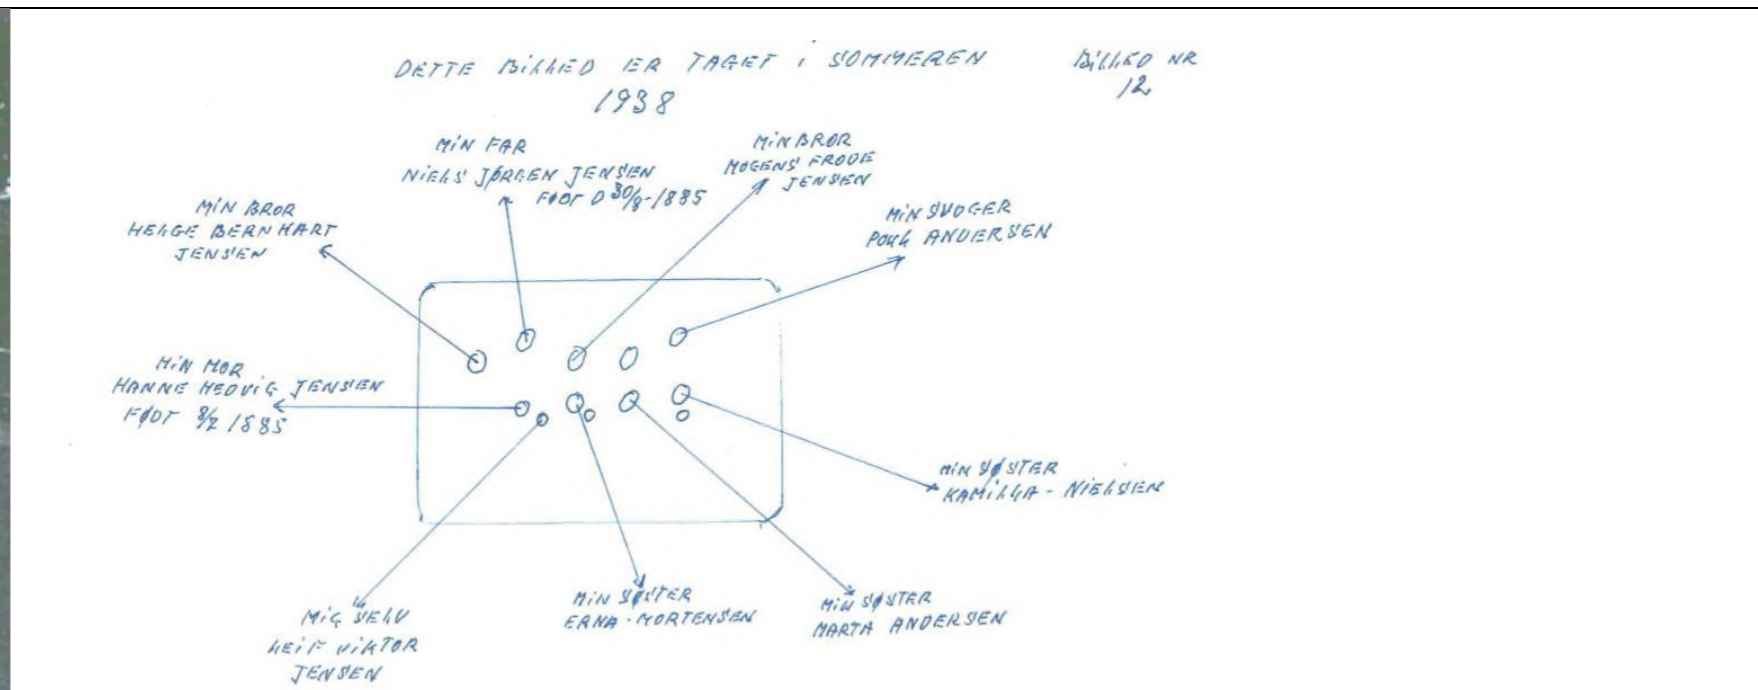 DETTE BILLED ER TAGET I SOMMEREN
1938
BILLED NR
12
MIN FAR
NIELS JØRGEN JENSEN
FØDT D 30/8-1885
MIN BROR
MOGENS FRODE
JENSEN
MIN BROR
HELGE BERNHART
JENSEN
MIN SVOGER
POUL ANDERSEN
MIN MOR
HANNE HEDVIG JENSEN
FØDT 8/2 1885
MIN SØSTER
KAMILLA - NIELSEN
MIG SELV
LEIF VIKTOR
JENSEN
MIN SØSTER
ERNA - MORTENSEN
MIN SØSTER
MARTA ANDERSEN